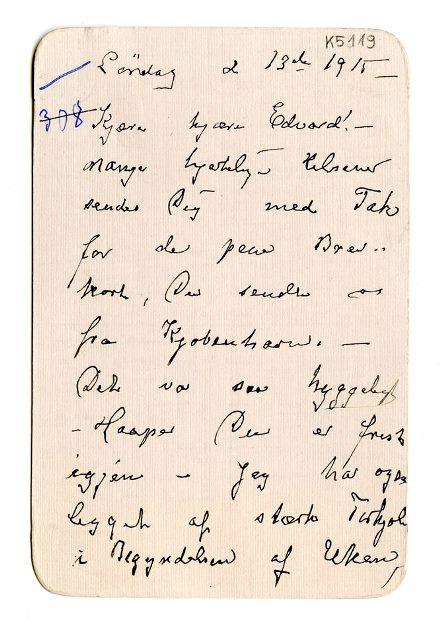 K5119
Söndag d 13de 1915
308 Kjære kjære Edvard! —
mange hjertelige Hilsener
sendes Dig med Tak
for de pene Brev-
kort, Du sendte os
fra Kjøbenhavn. —
Det var saa hyggeligt
- Haaper Du er frisk
igjen - Jeg har også
ligget af stærk Forkjöl
i Begyndelsen af Uken,